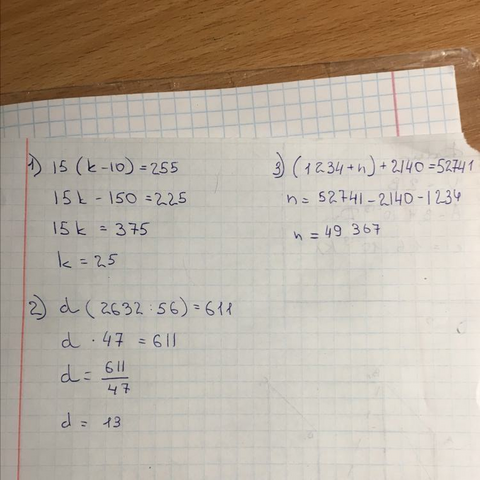 1) 15 (k-10) = 255
15k - 150 = 225
15k = 375
k = 25
2) d (2632 : 56) = 611
d · 47 = 611
d = 611/47
d = 13
3) (1234+n) + 2140 = 52741
n = 52741 - 2140 - 1234
n = 49 367